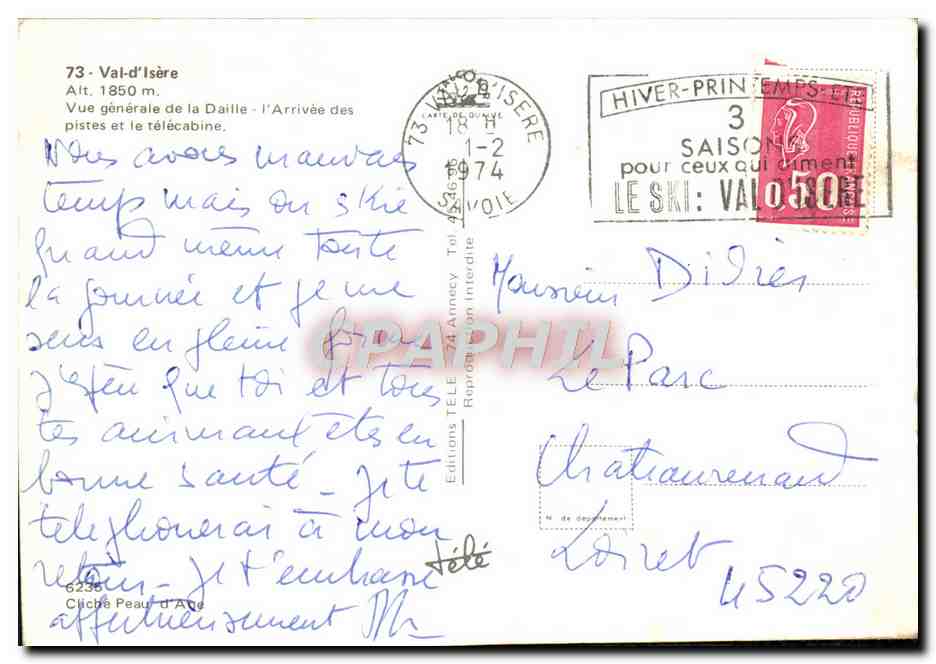 73 - Val-d'Isère
Alt. 1850 m.
Vue générale de la Daille - l'Arrivée des
pistes et le télécabine.
Nous avons mauvais
temps mais on skie
quand même toute
la journée et je me
sens en pleine forme
J'espère que toi et tous
tes animaux êtes en
bonne santé - Je te
telephonerai à mon
retour - Je t'embrasse
affectueusement
6235
Cliché Peau d'Ane
Editions TELE 74 Annecy Tel.
Reproduction Interdite
télé
73 VAL D'ISERE
18 H
1-2
1974
SAVOIE
HIVER-PRINTEMPS-ETE
3
SAISONS
pour ceux qui aiment
LE SKI: VAL D'ISERE
REPUBLIQUE FRANCAISE
0,50
Monsieur
Le Parc
Chateaurenard
N° de département
Loiret
45220
CPAPHIL